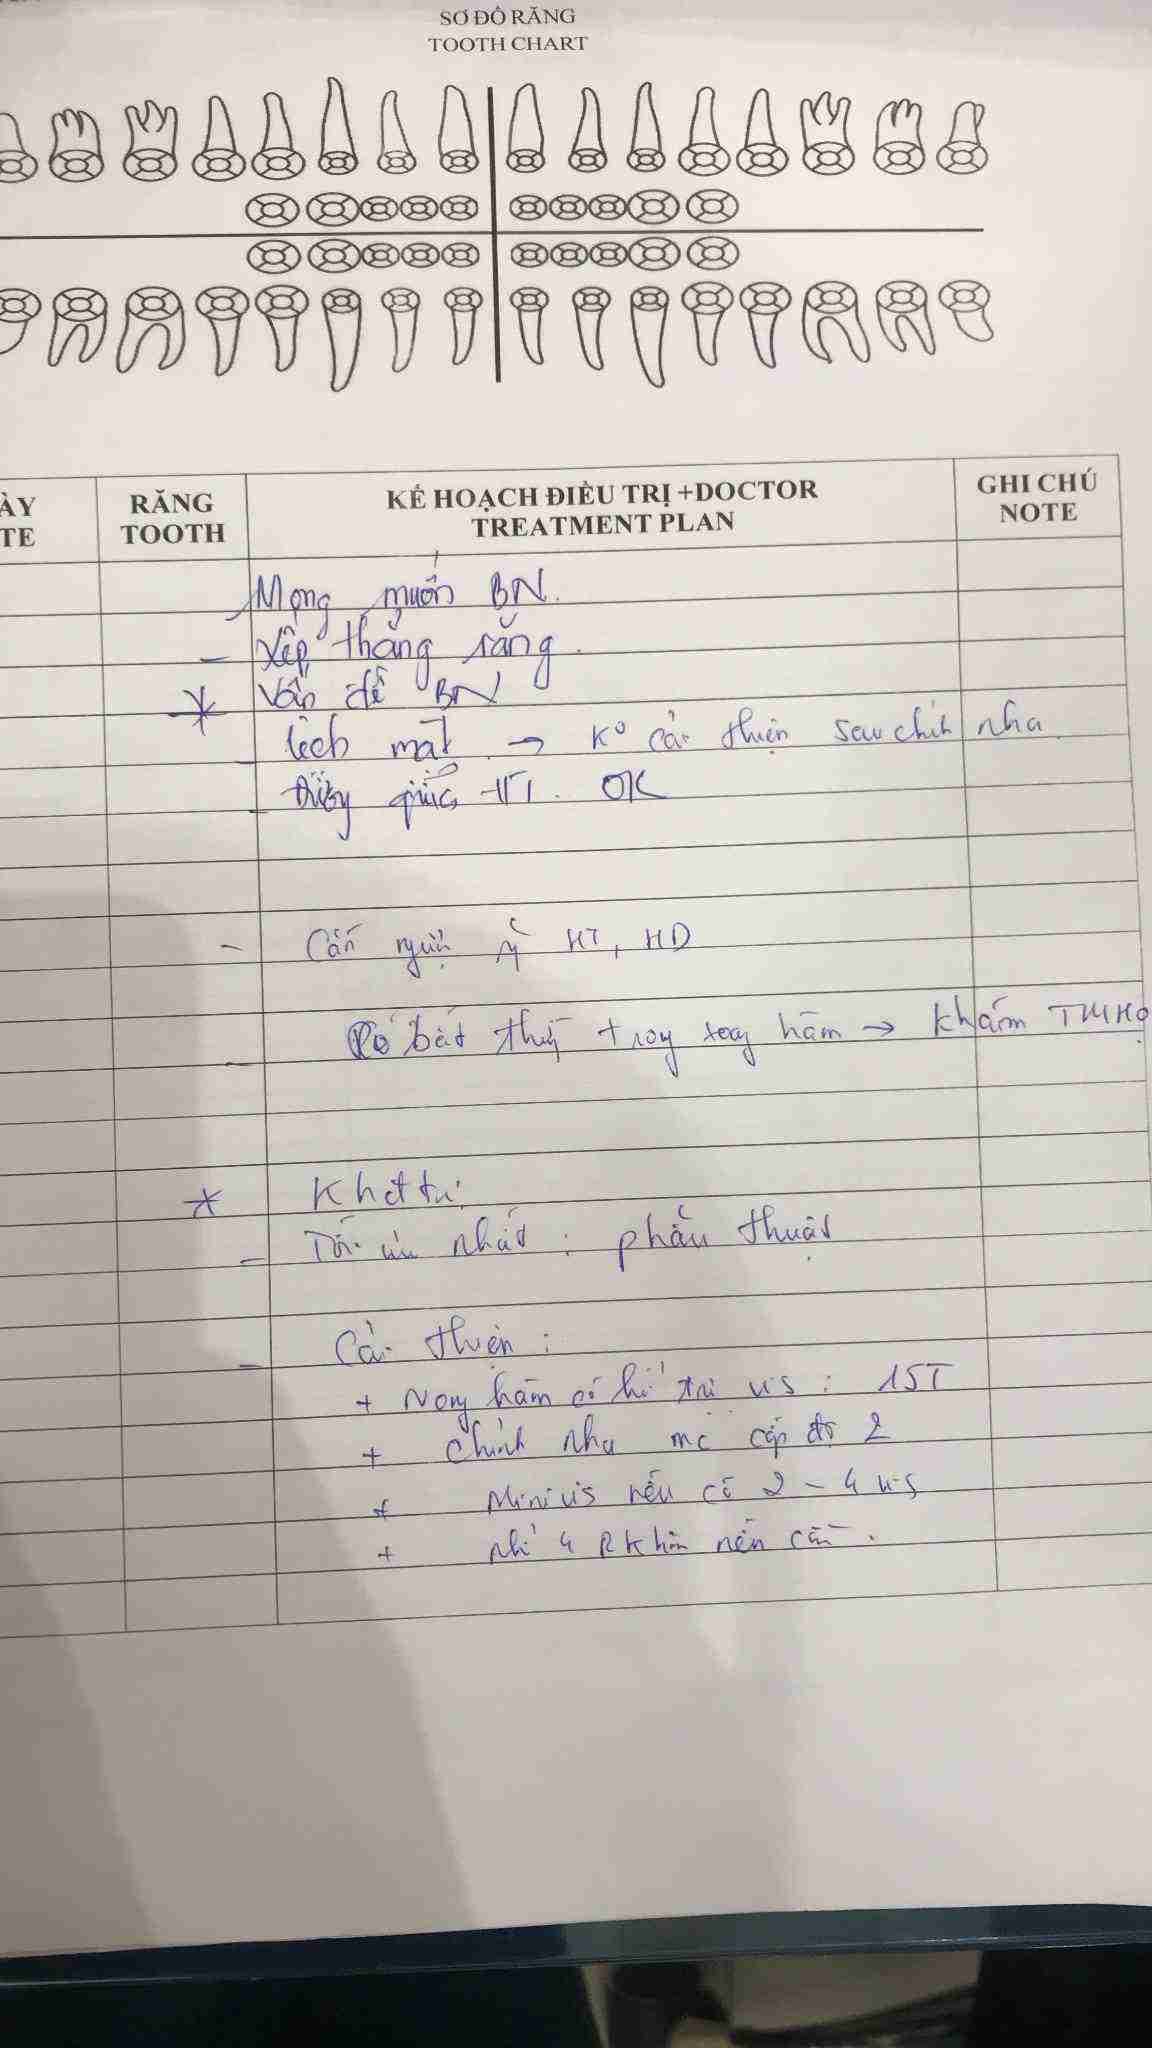 SƠ ĐỒ RĂNG
TOOTH CHART
ÀY
TE
RĂNG
TOOTH
KẾ HOẠCH ĐIỀU TRỊ +DOCTOR
TREATMENT PLAN
GHI CHÚ
NOTE
Mong muốn BN.
- Xếp thẳng răng.
* Vấn đề BN
- lệch mặt → Ko cải thiện sau chỉnh nha
- OK
- Cắn ngược HT, HD
- Có bất thường trong xương hàm → Khám TMH
*
- Tối ưu nhất: phẫu thuật
- Cải thiện:
+ Nong hàm có hỗ trợ vis: 15T
+ chỉnh nha mc cấp độ 2
+ Minivis nếu có 2 - 4 vis
+ nhổ 4 R Khôn nếu cần.